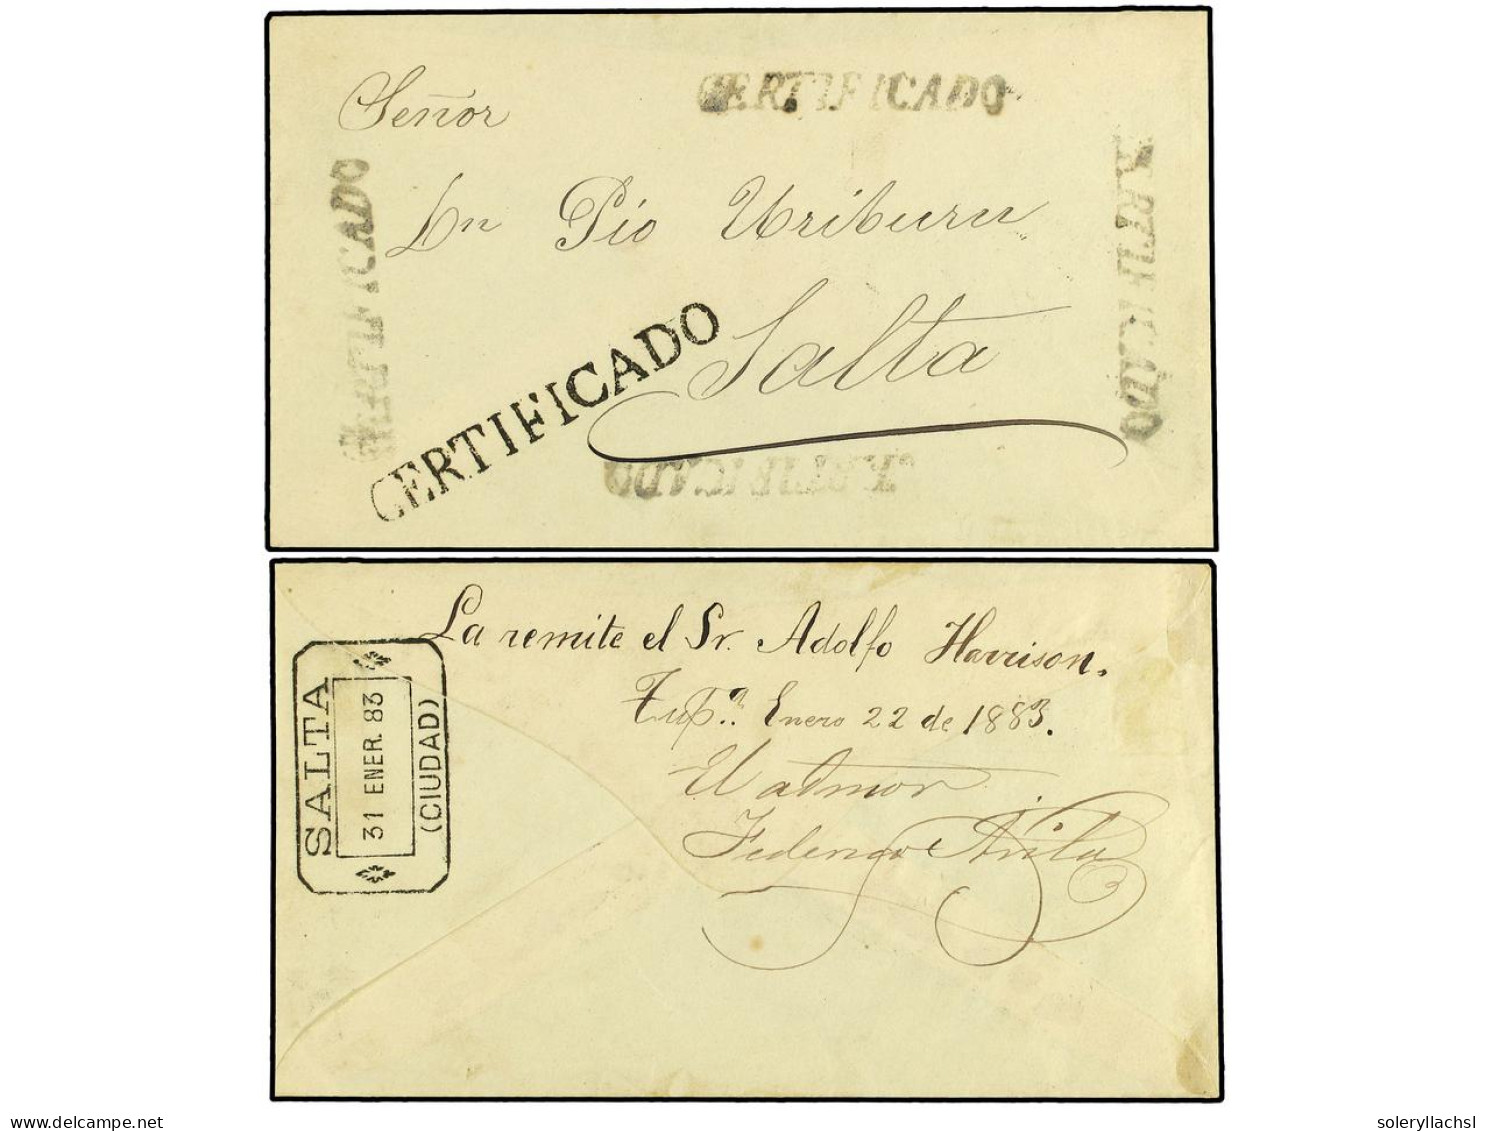 CERTIFICADO
Señor
CERTIFICADO
CERTIFICADO
Dn Pío Uriburu
Salta
CERTIFICADO
CERTIFICADO
La remite el Sr. Adolfo Harrison.
Tupª. Enero 22 de 1883.
SALTA
31 ENER. 83
(CIUDAD)
Federico Avila
delcampe.net
soleryllachsl